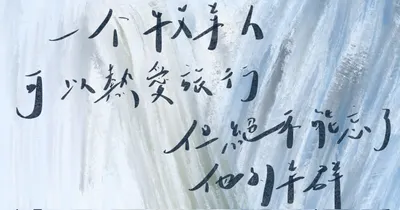 一个牧羊人
可以熱愛旅行
但絕不能忘了
他的羊群